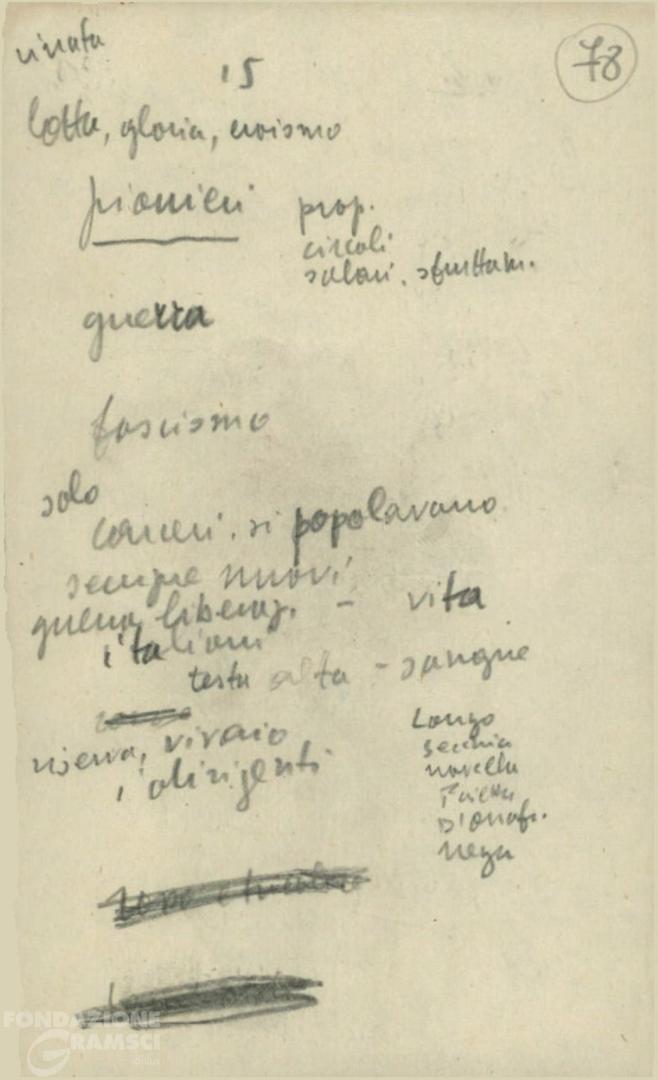 78
15
lotta, gloria, eroismo
pionieri
prop.
circoli
salari. sfruttam.
guerra
fascismo
solo
carceri. si popolavano
sempre nuovi
guerra liberaz. - vita
italiani
testa alta - sangue
riserva, vivaio
i dirigenti
Longo
Secchia
Novella
D'Onofr.
Negar
FONDAZIONE
GRAMSCI